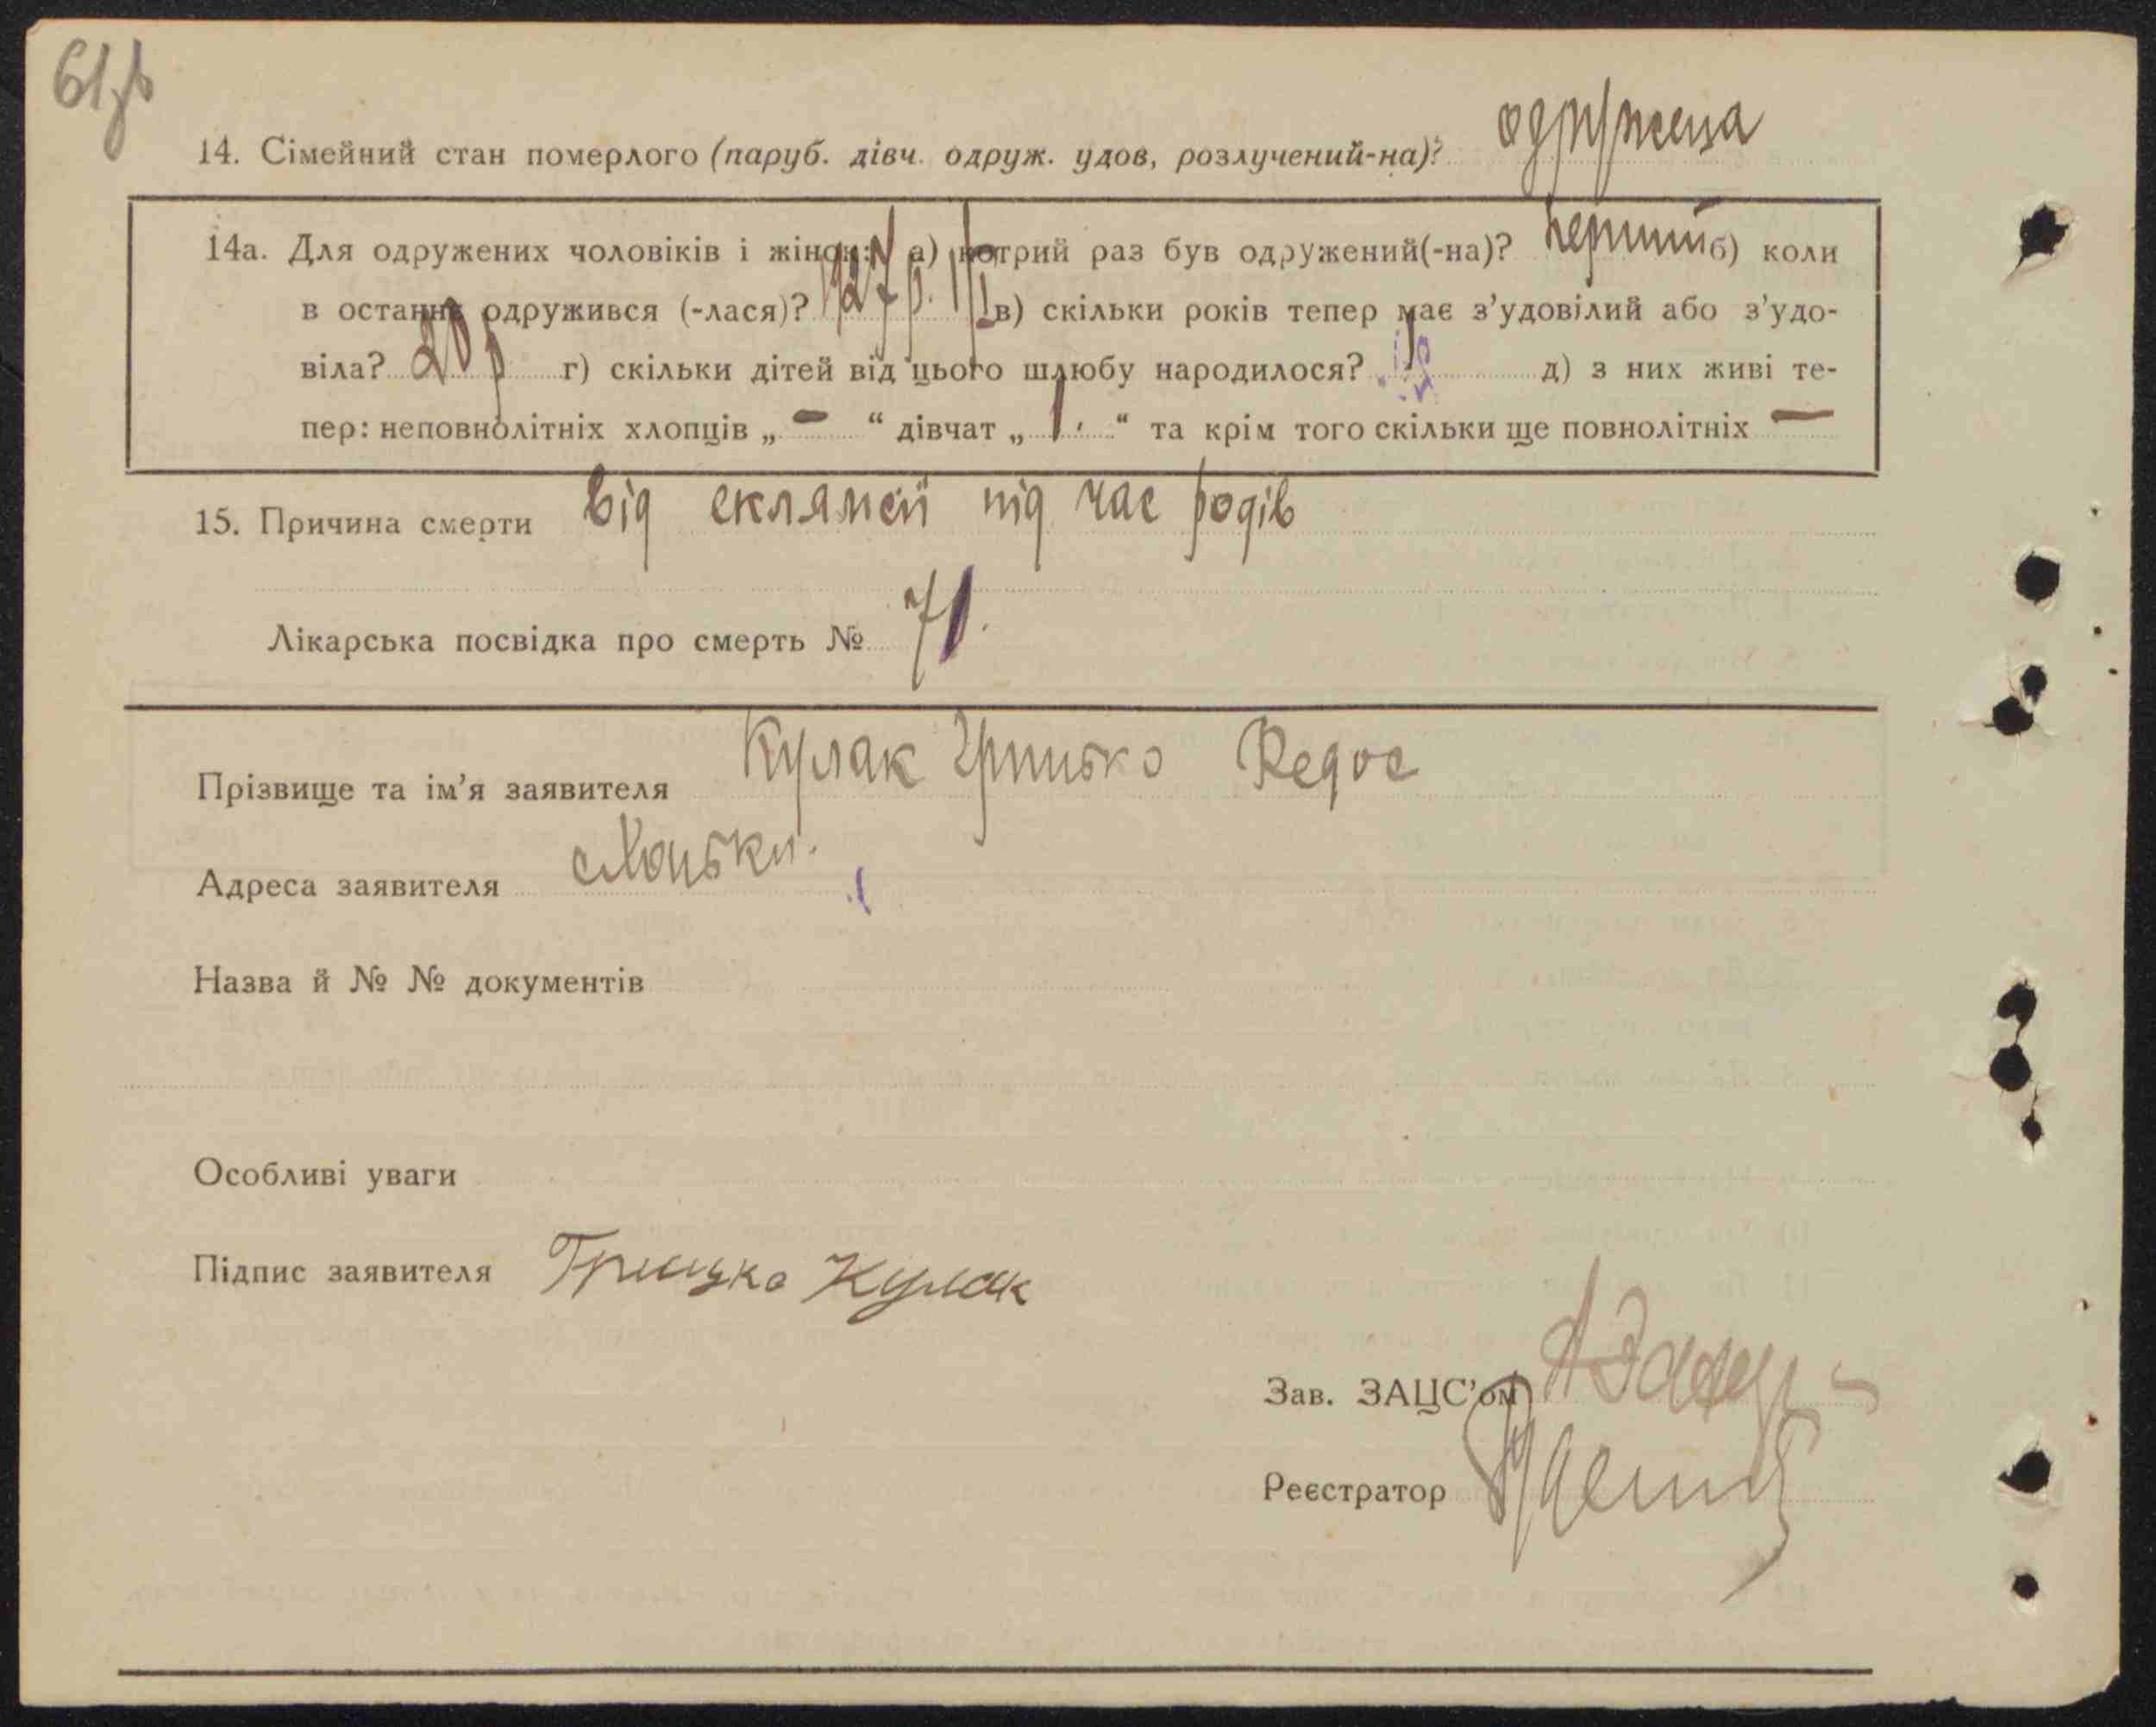 61
14. Сімейний стан померлого (паруб. дівч. одруж. удов, розлучений-на)? одружена
14а. Для одружених чоловіків і жінок: а) котрий раз був одружений(-на)? перший б) коли
в останнє одружився (-лася)? 1927 р. в) скільки років тепер має з'удовілий або з'удо-
віла? 20 р г) скільки дітей від цього шлюбу народилося? д) з них живі те-
пер: неповнолітніх хлопців „ — “ дівчат „ 1 “ та крім того скільки ще повнолітніх —
15. Причина смерти від еклямсії під час родів
Лікарська посвідка про смерть № 71.
Прізвище та ім'я заявителя Кулак Гринько Федос
Адреса заявителя
Назва й № № документів
Особливі уваги
Підпис заявителя Грицько Кулак
Зав. ЗАЦС'ом
Реєстратор